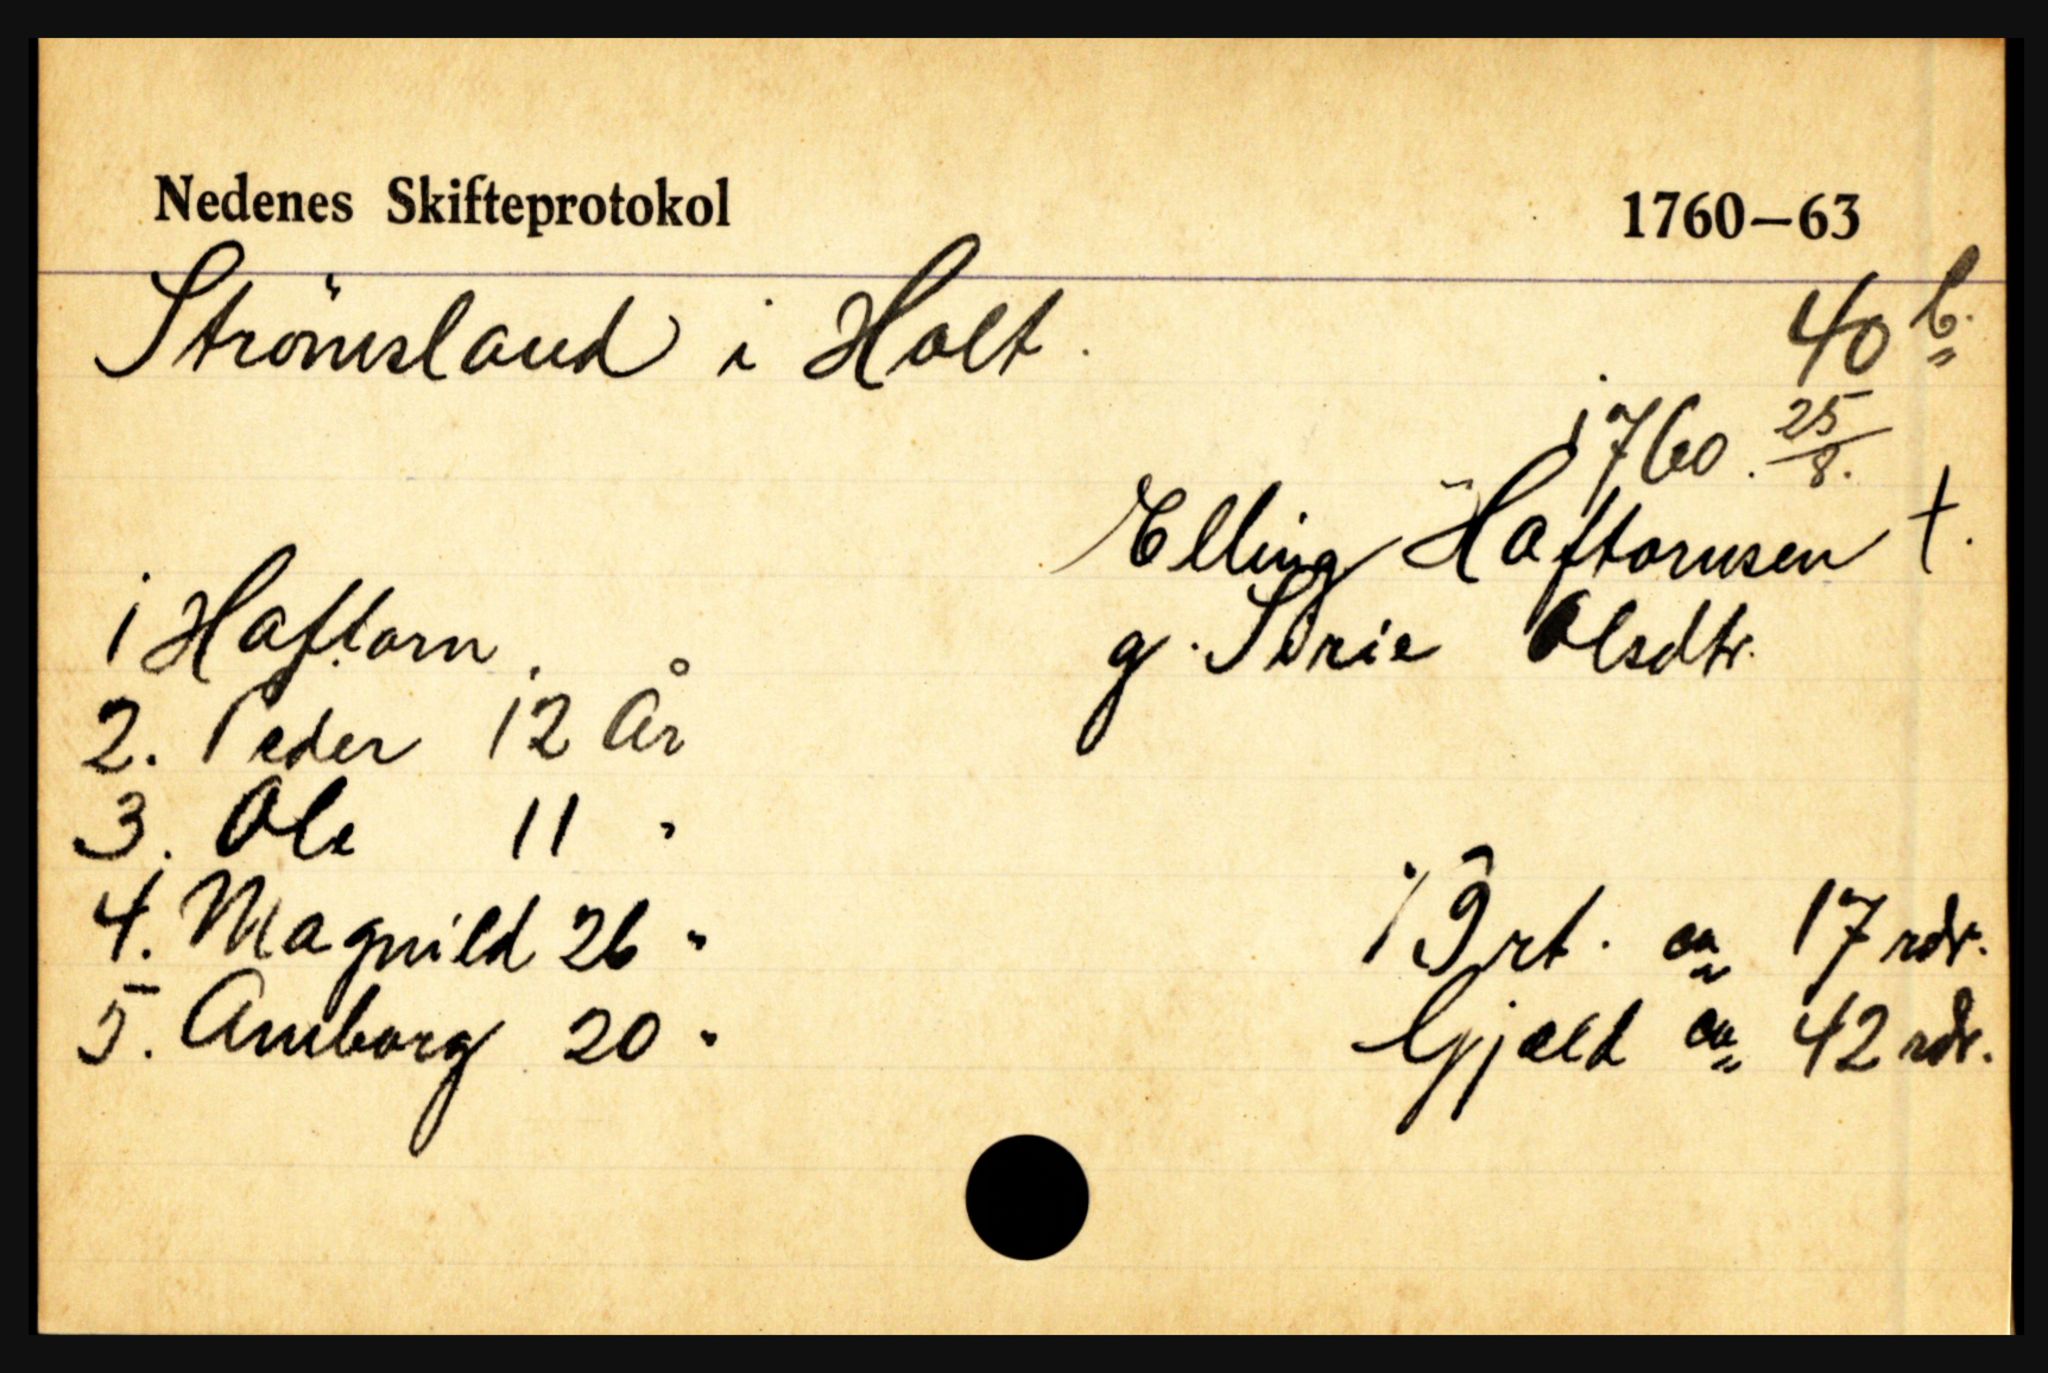 Nedenes Skifteprotokol 1760–63
Strömsland i Holt. 40 b.
1760. 25/8.
Elling Haftornsen †.
g. Sirie Olsdtr.
1 Haftorn.
2. Peder 12 År
3. Ole 11 "
4. Magnild 26 "
5. Amborg 20 "
ca 17 rdr.
Gjæld ca 42 rdr.